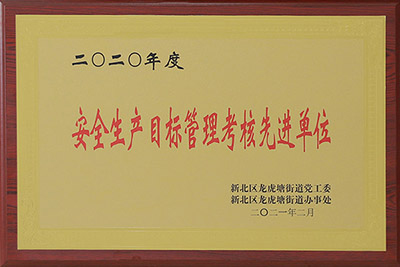 二〇二〇年度
安全生产目标管理考核先进单位
新北区龙虎塘街道党工委
新北区龙虎塘街道办事处
二〇二一年二月